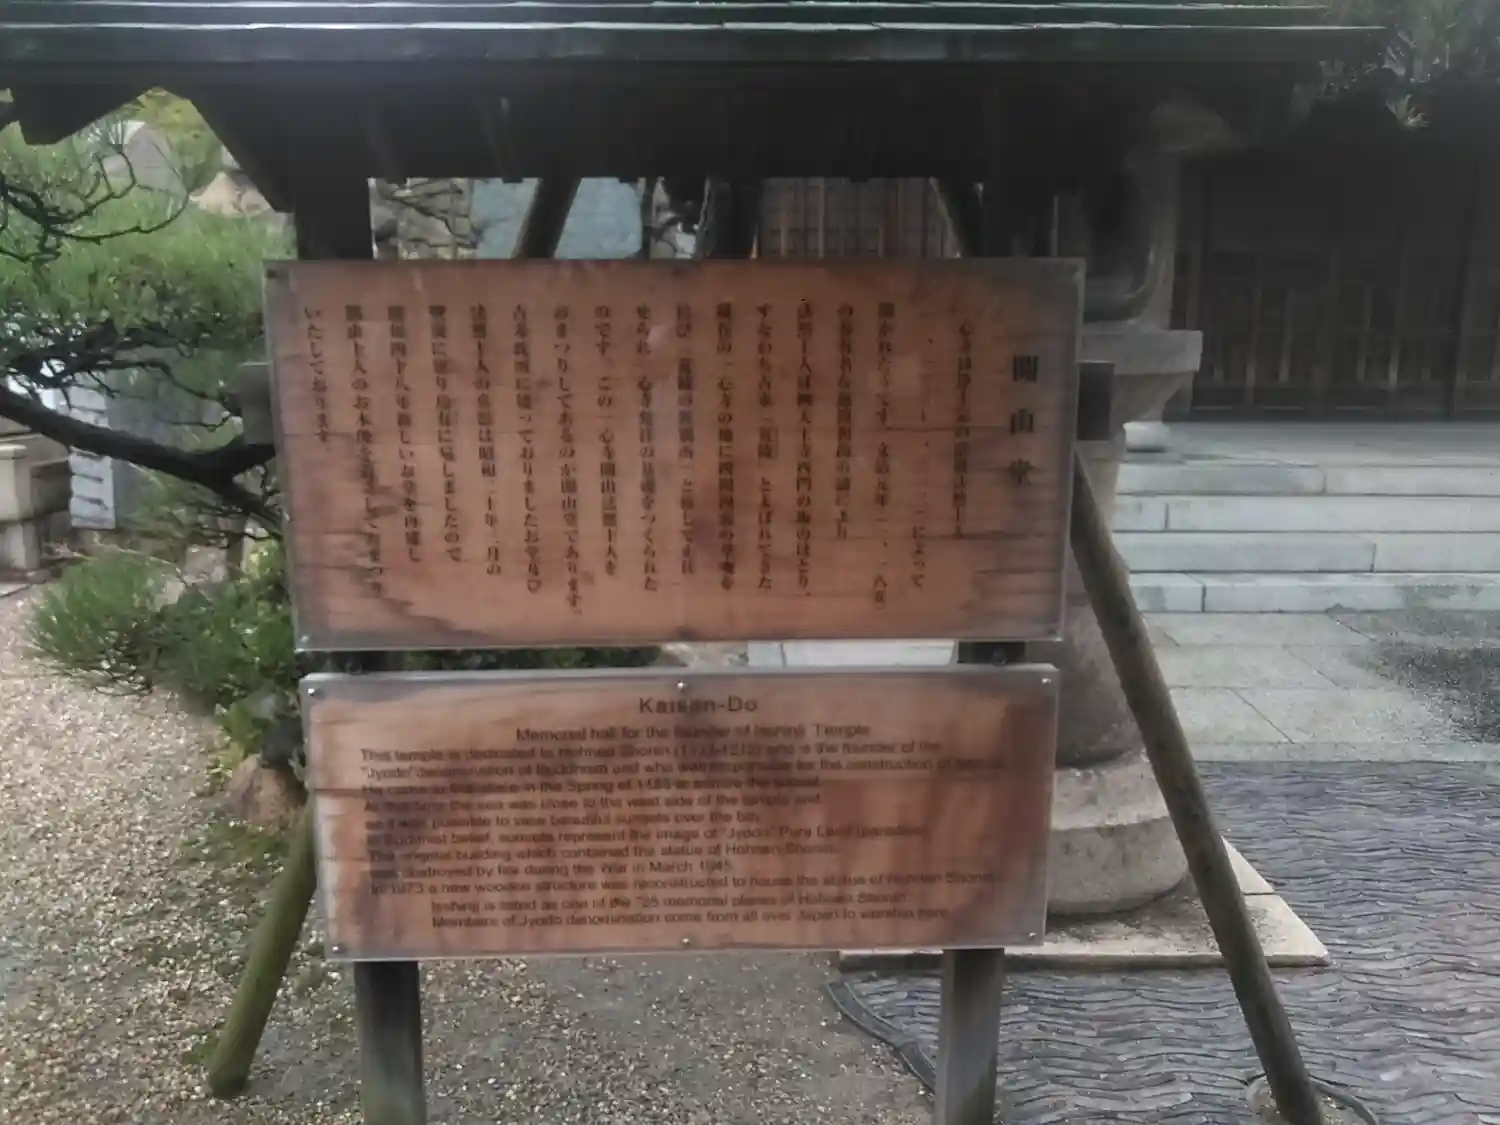 開山堂
一心寺は浄土宗の宗祖法然上人
によって
開かれたお寺です。文治元年(一一八五
の
法然上人は四天王寺西門の坂のほとり、
すなわち古来「荒陵」とよばれてきた
現在の一心寺の地に四間四面の草庵を
結び「荒陵の新別所」と称して止住
せられ一心寺発祥の基礎をつくられた
のです。この一心寺開山法然上人を
おまつりしてあるのが開山堂であります。
古来義所に建っておりましたお堂及び
法然上人の真影は昭和二十年三月の
戦災に依り烏有に帰しましたので
昭和四十八年新しいお堂を再建し
開山上人のお木像を造立しておまつり
いたしております。
Kaisan-Do
Memorial hall for the founder of Isshinji Temple
This temple is dedicated to Hohnen Shonin (1133-1212) who is the founder of the
"Jyodo"denomination of Buddhism and who was responsible for the construction of
He came to this place in the Spring of 1185 to admire the sunset.
At that time the sea was close to the west side of the temple and
so it was possible to view beautiful sunsets over the bay.
In Buddhist belief, sunsets represent the image of "Jyodo" Pure Land (paradise).
The original building which contained the statue of Hohnen Shonin
was destroyed by fire during the War in March 1945.
In 1973 a new wooden structure was reconstructed to house the statue of Hohnen Shonin.
Isshinji is listed as one of the "25 memorial places of Hohnen Shonin
Members of Jyodo denomination come from all over Japan to worship here.